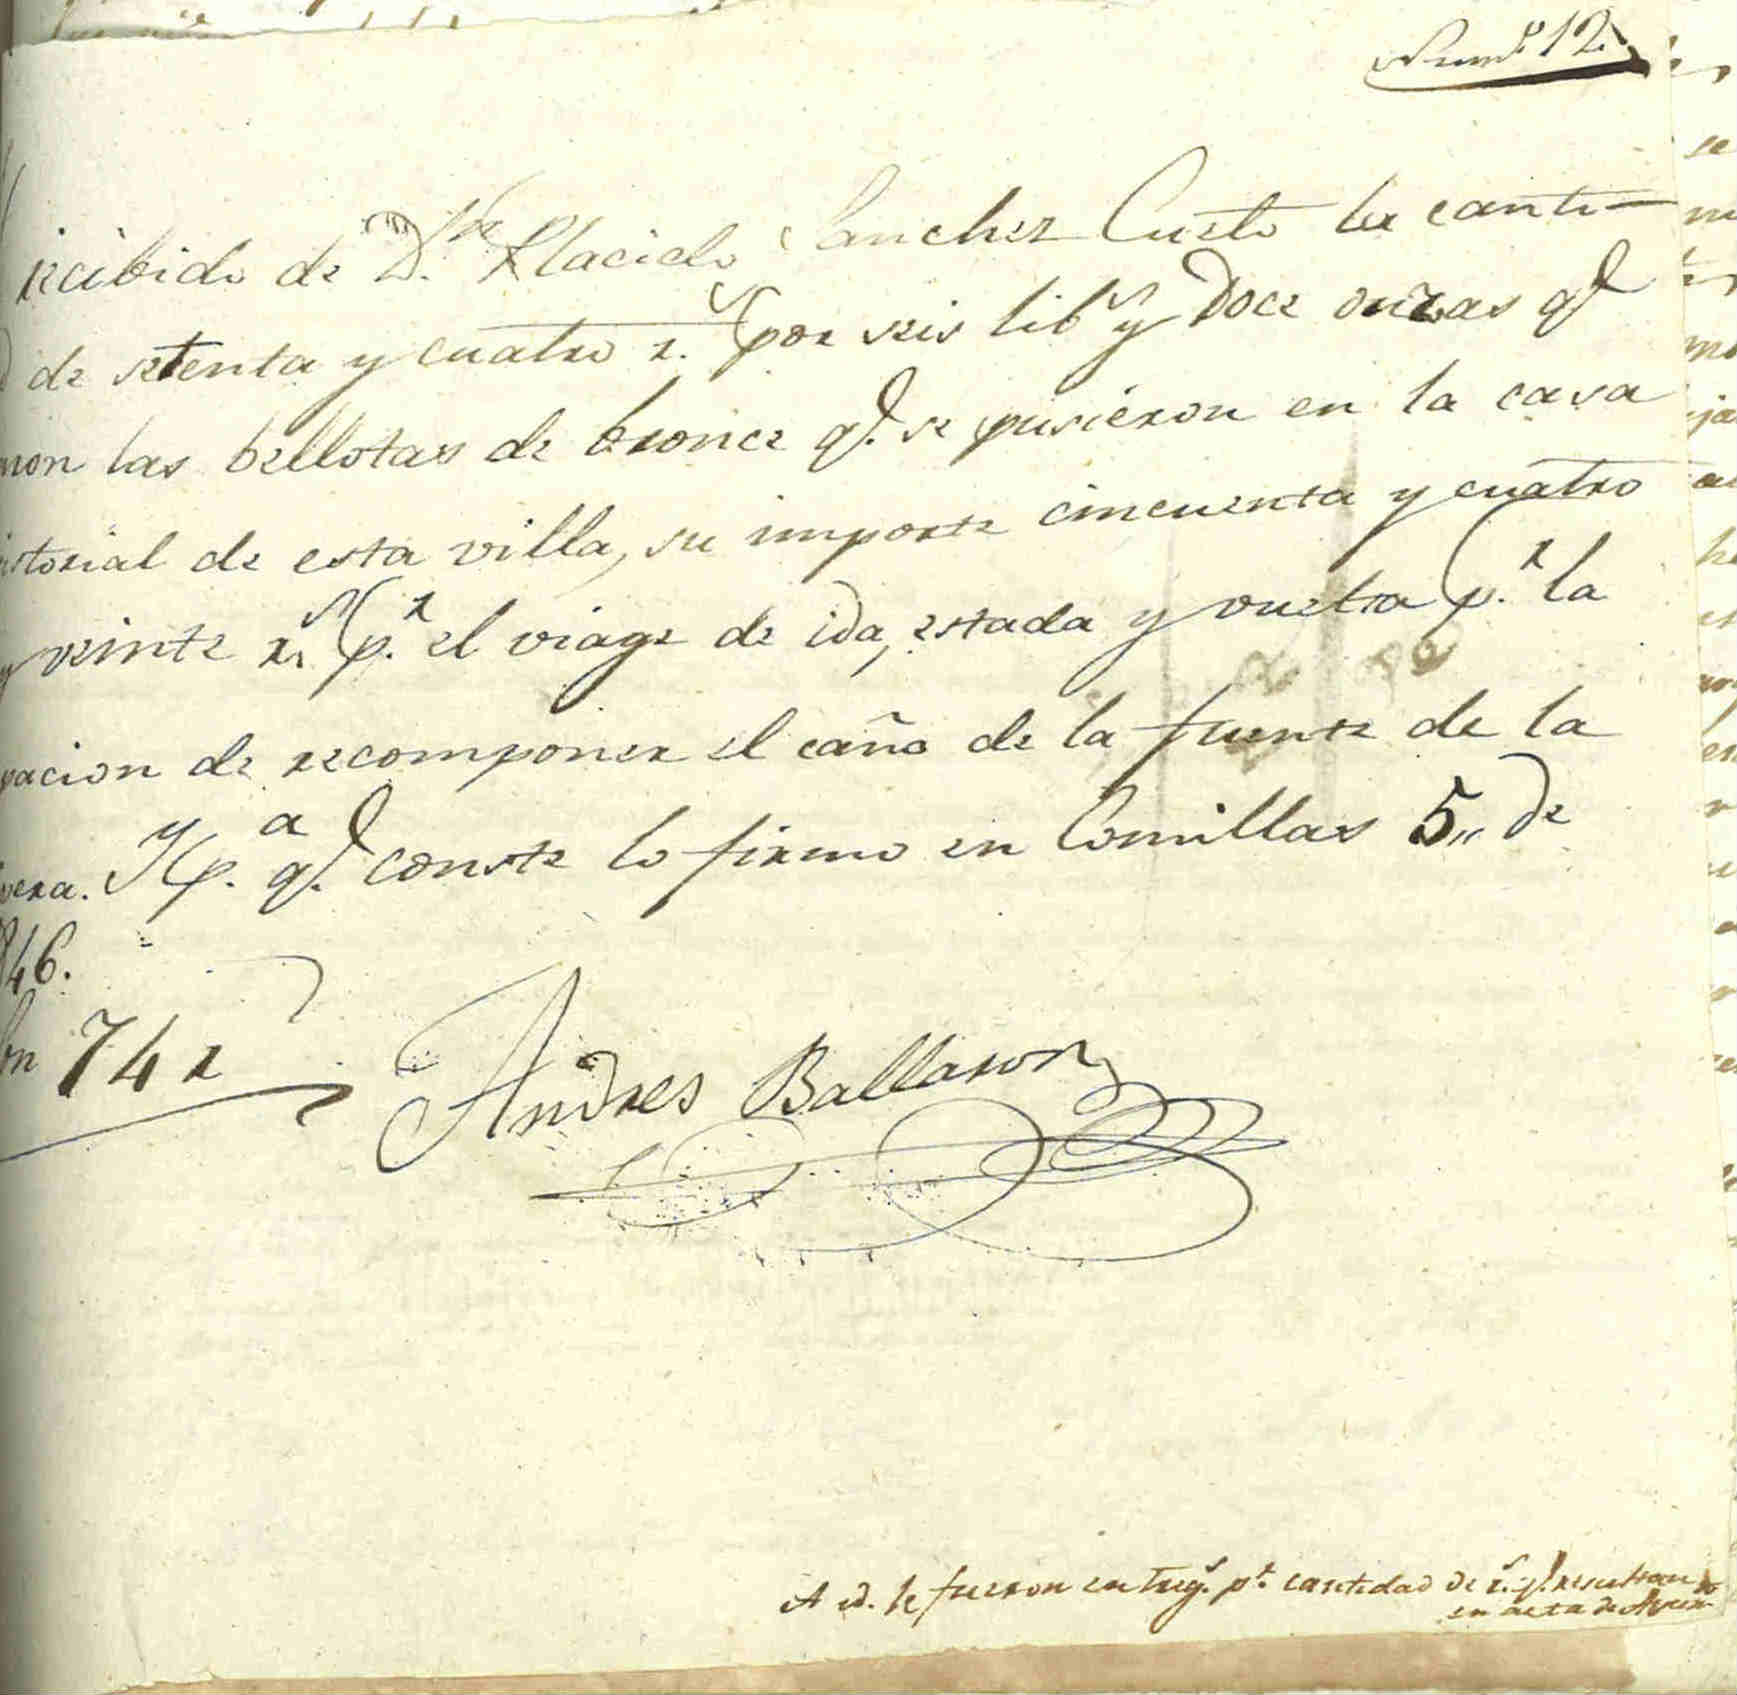 Num.º 12.
recibido de D.n Placido Sanchez Cueto la canti-
de setenta y cuatro r.s por seis lib.s y doce onzas q.e
las bellotas de bronce q.e se pusieron en la casa
istorial de esta villa, su importe cincuenta y cuatro
y veinte r.s p.r el viage de ida, estada y vuelta p.r la
pacion de recomponer el caño de la fuente de la
vera. Y p.a q.e conste lo firmo en Comillas 5,, de
846.
on 74 r
Andres Ballaron
A id. le fueron entreg.s p.r cantidad de r.s q.e resultan
en acta de